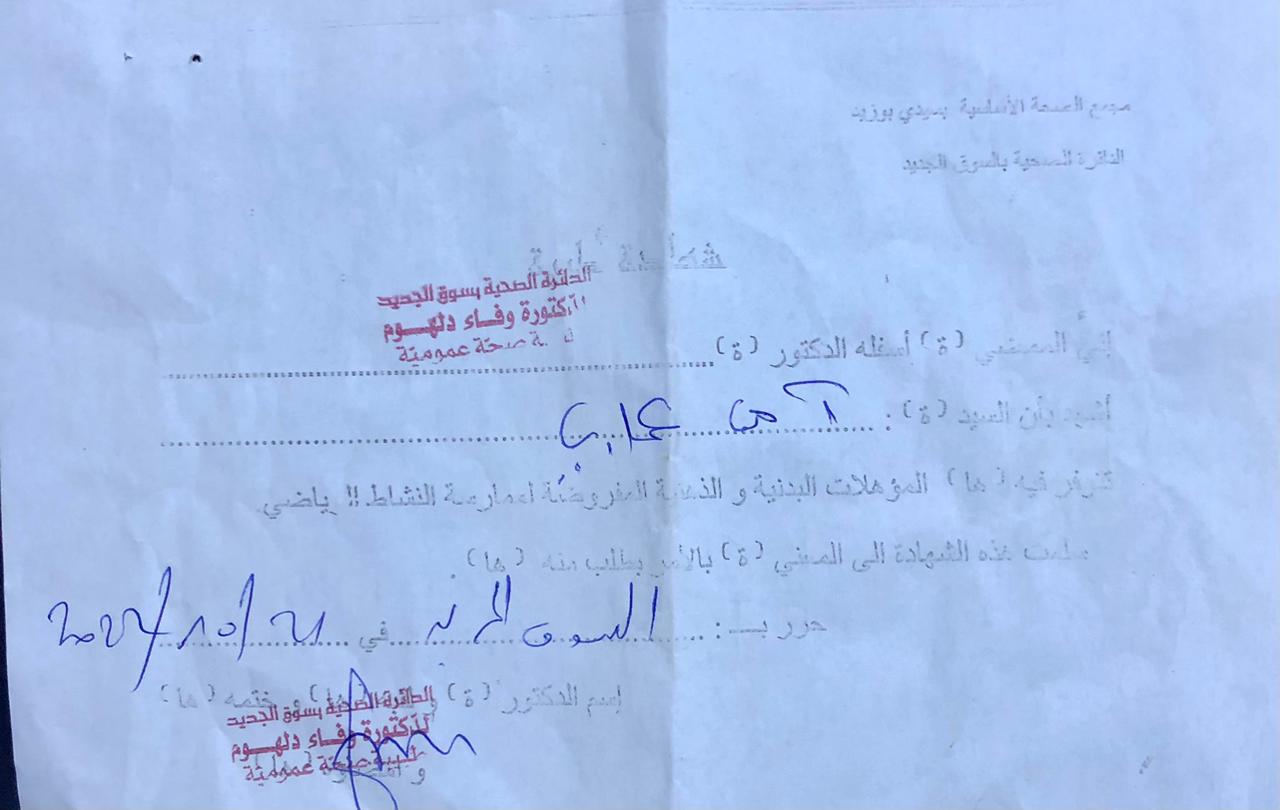 مجمع الصحة الأساسية بسيدي بوزيد
الدائرة الصحية بالسوق الجديد
شهادة طبية
الدائرة الصحية بسوق الجديد
الدكتورة وفاء دلهوم
طبيبة صحة عمومية
إني الممضي (ة) أسفله الدكتور (ة)
أشهد بأن السيد (ة) :
تتوفر فيه (ها) المؤهلات البدنية و الذهنية المفروضة لممارسة النشاط الرياضي.
سلمت هذه الشهادة الى المعني (ة) بالأمر بطلب منه (ها) .
حرر بـ : السوق الجديد في 21/10/2022
إسم الدكتور (ة) و ختمه (ها)
الدائرة الصحية بسوق الجديد
الدكتورة وفاء دلهوم
طبيبة صحة عمومية